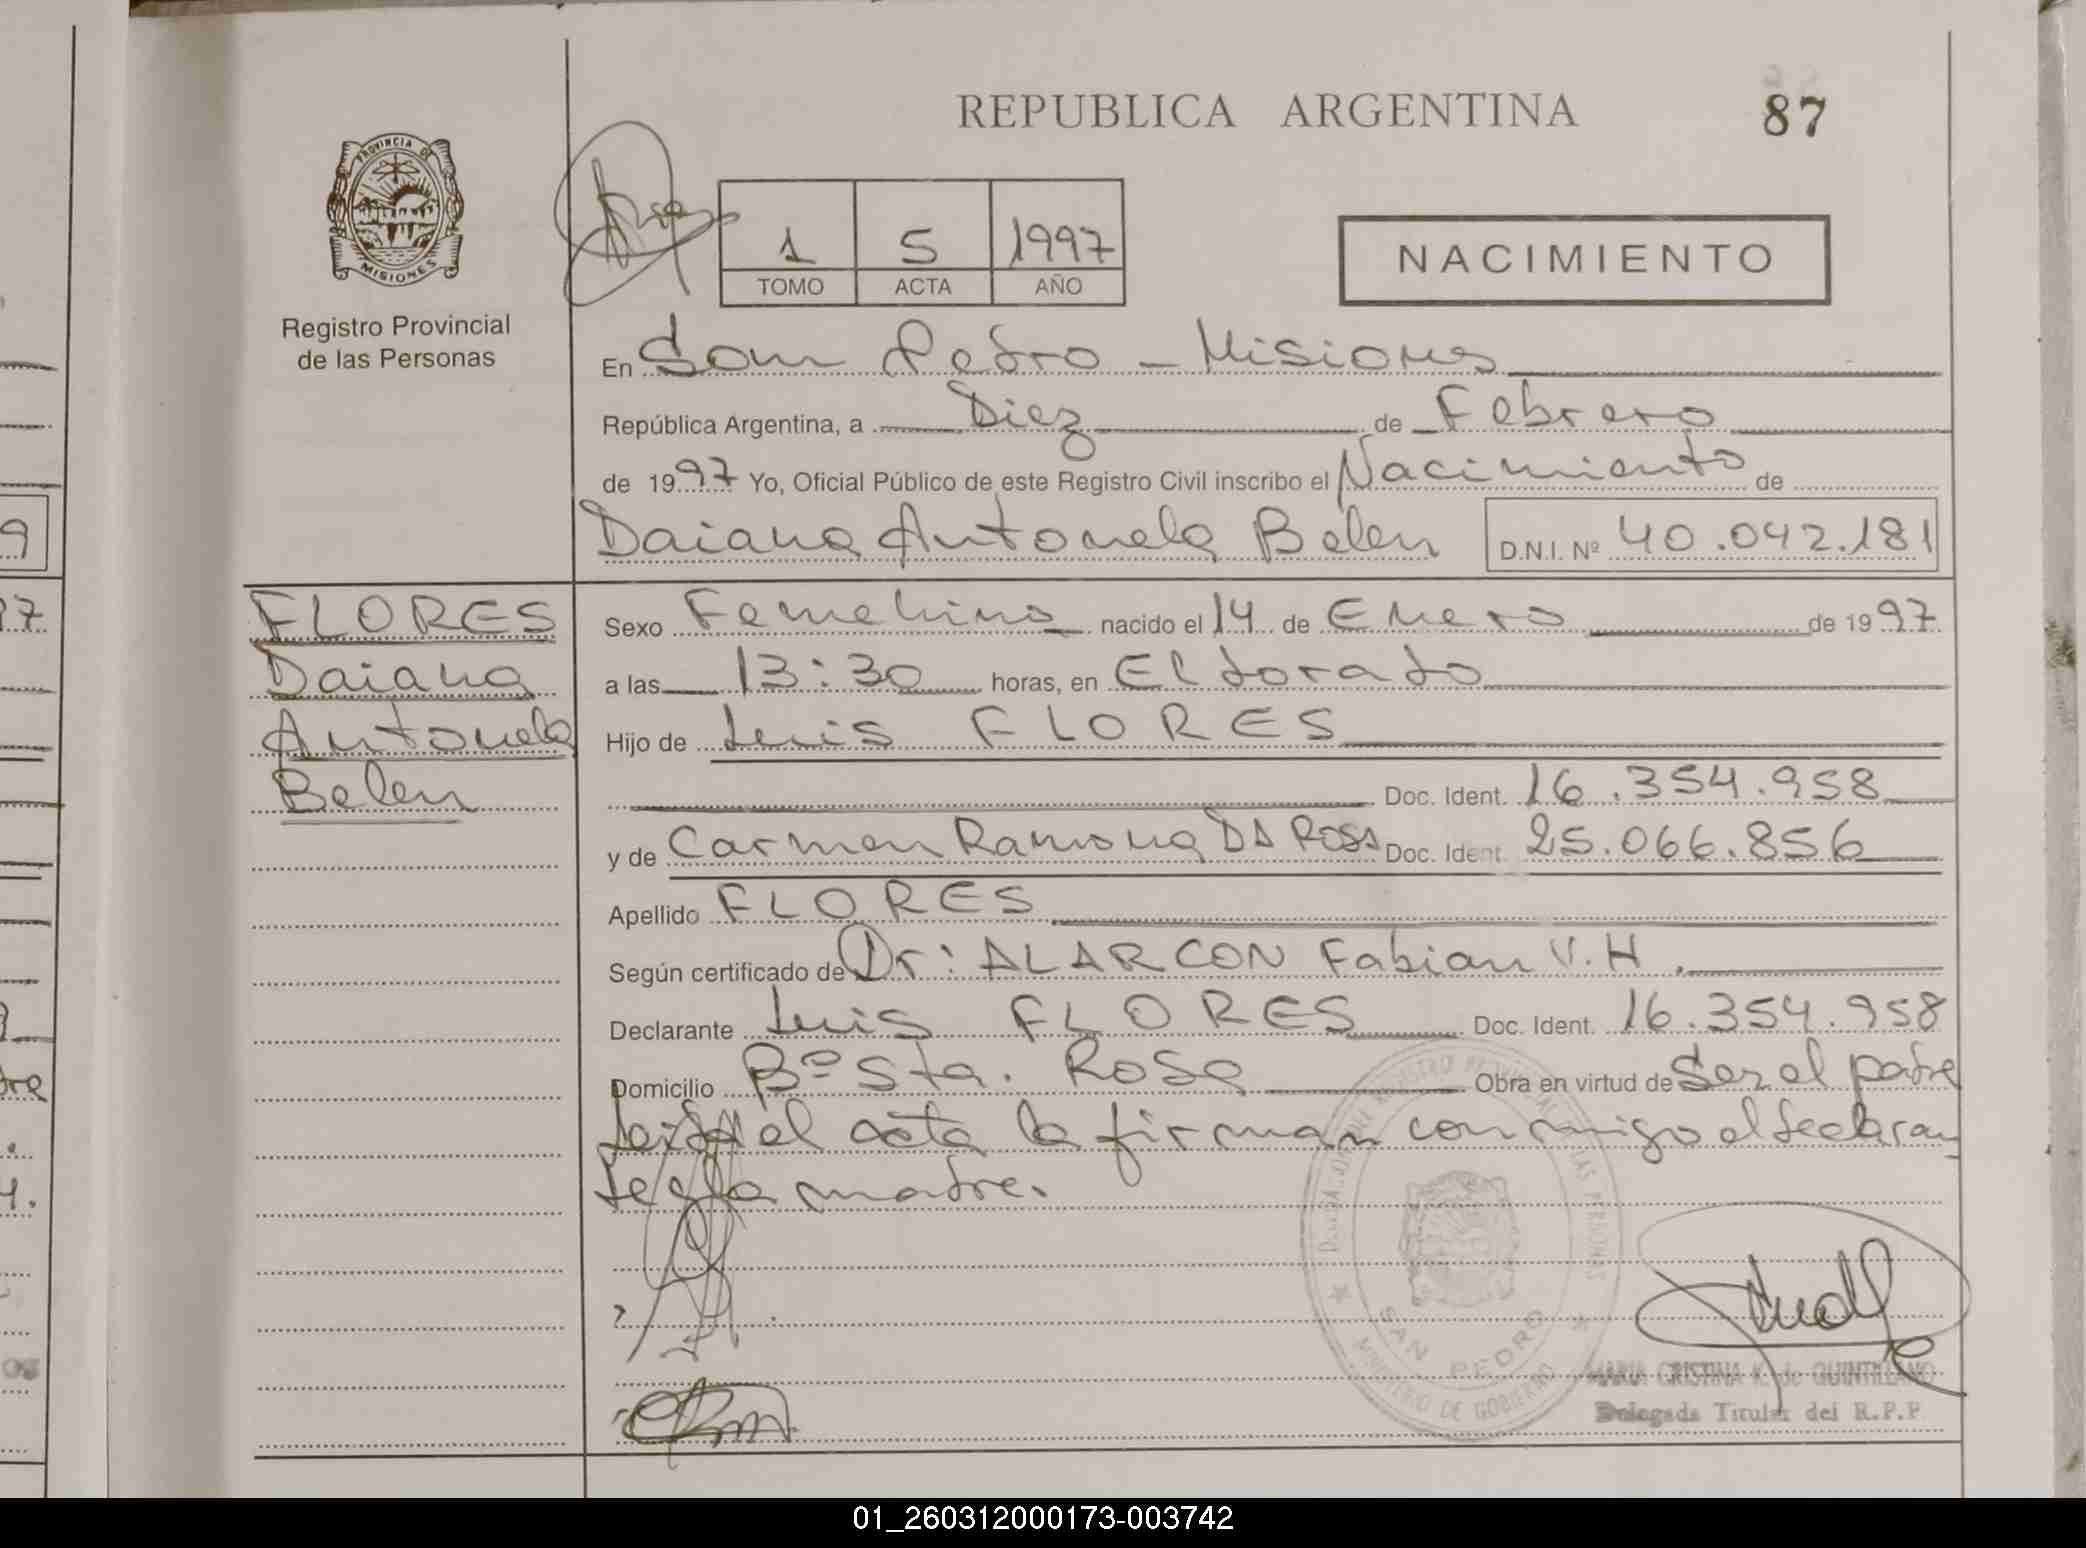 REPUBLICA ARGENTINA
87
PROVINCIA DE
MISIONES
Registro Provincial
de las Personas
1 5 1997
TOMO ACTA AÑO
NACIMIENTO
En San Pedro - Misiones
República Argentina, a Diez de Febrero
de 1997 Yo, Oficial Público de este Registro Civil inscribo el Nacimiento de
Daiana Antonela Belen D.N.I. Nº 40.042.181
FLORES
Daiana
Antonela
Belen
Sexo Femenino nacido el 14 de Enero de 1997
a las 13:30 horas, en Eldorado
Hijo de Luis FLORES
Doc. Ident. 16.354.958
y de Carmen Ramona DA ROSA Doc. Ident. 25.066.856
Apellido FLORES
Según certificado de Dr: ALARCON Fabian V.H.
Declarante Luis FLORES Doc. Ident. 16.354.958
Domicilio Bº Sta. Rosa Obra en virtud de Ser el padre
Leida el acta la firman conmigo el declaran
te y la madre.
REGISTRO PROVINCIAL DE LAS PERSONAS
SAN PEDRO
MINISTERIO DE GOBIERNO
MARIA CRISTINA K. de QUINTILLANO
Delegada Titular del R.P.P.
01_260312000173-003742